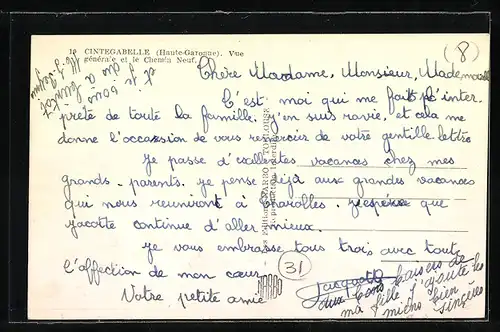 19 CINTEGABELLE (Haute-Garonne). Vue
générale et le Chemin Neuf.
(P)
Chère Madame, Monsieur, Mademoiselle
C'est moi qui me fait l'inter-
prète de toute la famille. J'en suis ravie, et cela me
donne l'occasion de vous remercier de votre gentille lettre
je passe d'excellentes vacances chez mes
grands-parents. je pense déjà aux grandes vacances
qui nous réuniront à Charolles. j'espère que
Jacotte continue d'aller mieux.
je vous embrasse tous trois avec toute
l'affection de mon cœur.
Votre petite amie
31
Jacqueline
aux bons baisers de
ma fille j'ajoute les
miens bien
sincères
et je
vous dis
à bientôt